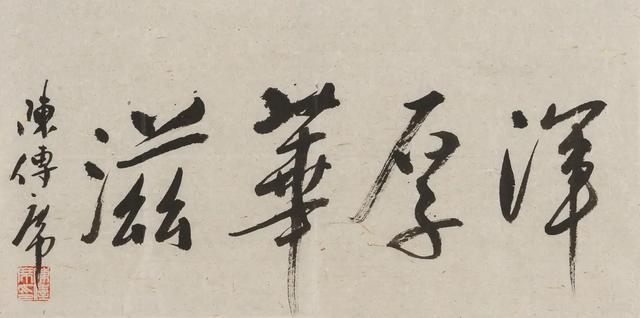 渾厚華滋
陳傳席